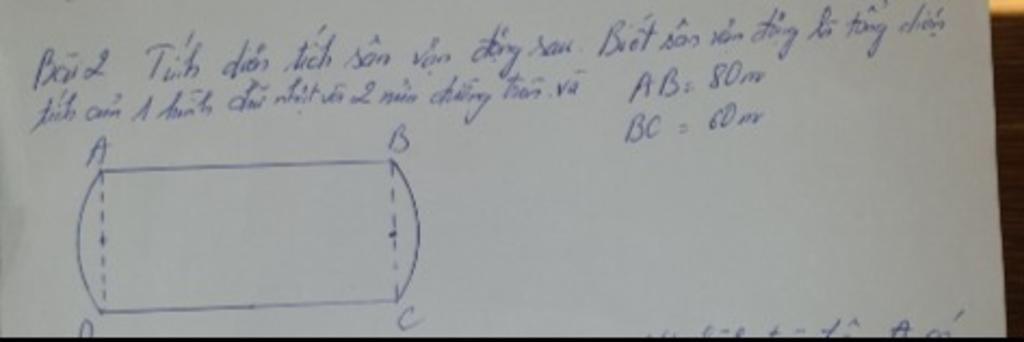 Bài 2 Tính diện tích sân vận động sau. Biết sân vận động là tổng diện
tích của 1 hình chữ nhật và 2 nửa đường tròn. và AB = 80m
BC = 60m
A B
D C